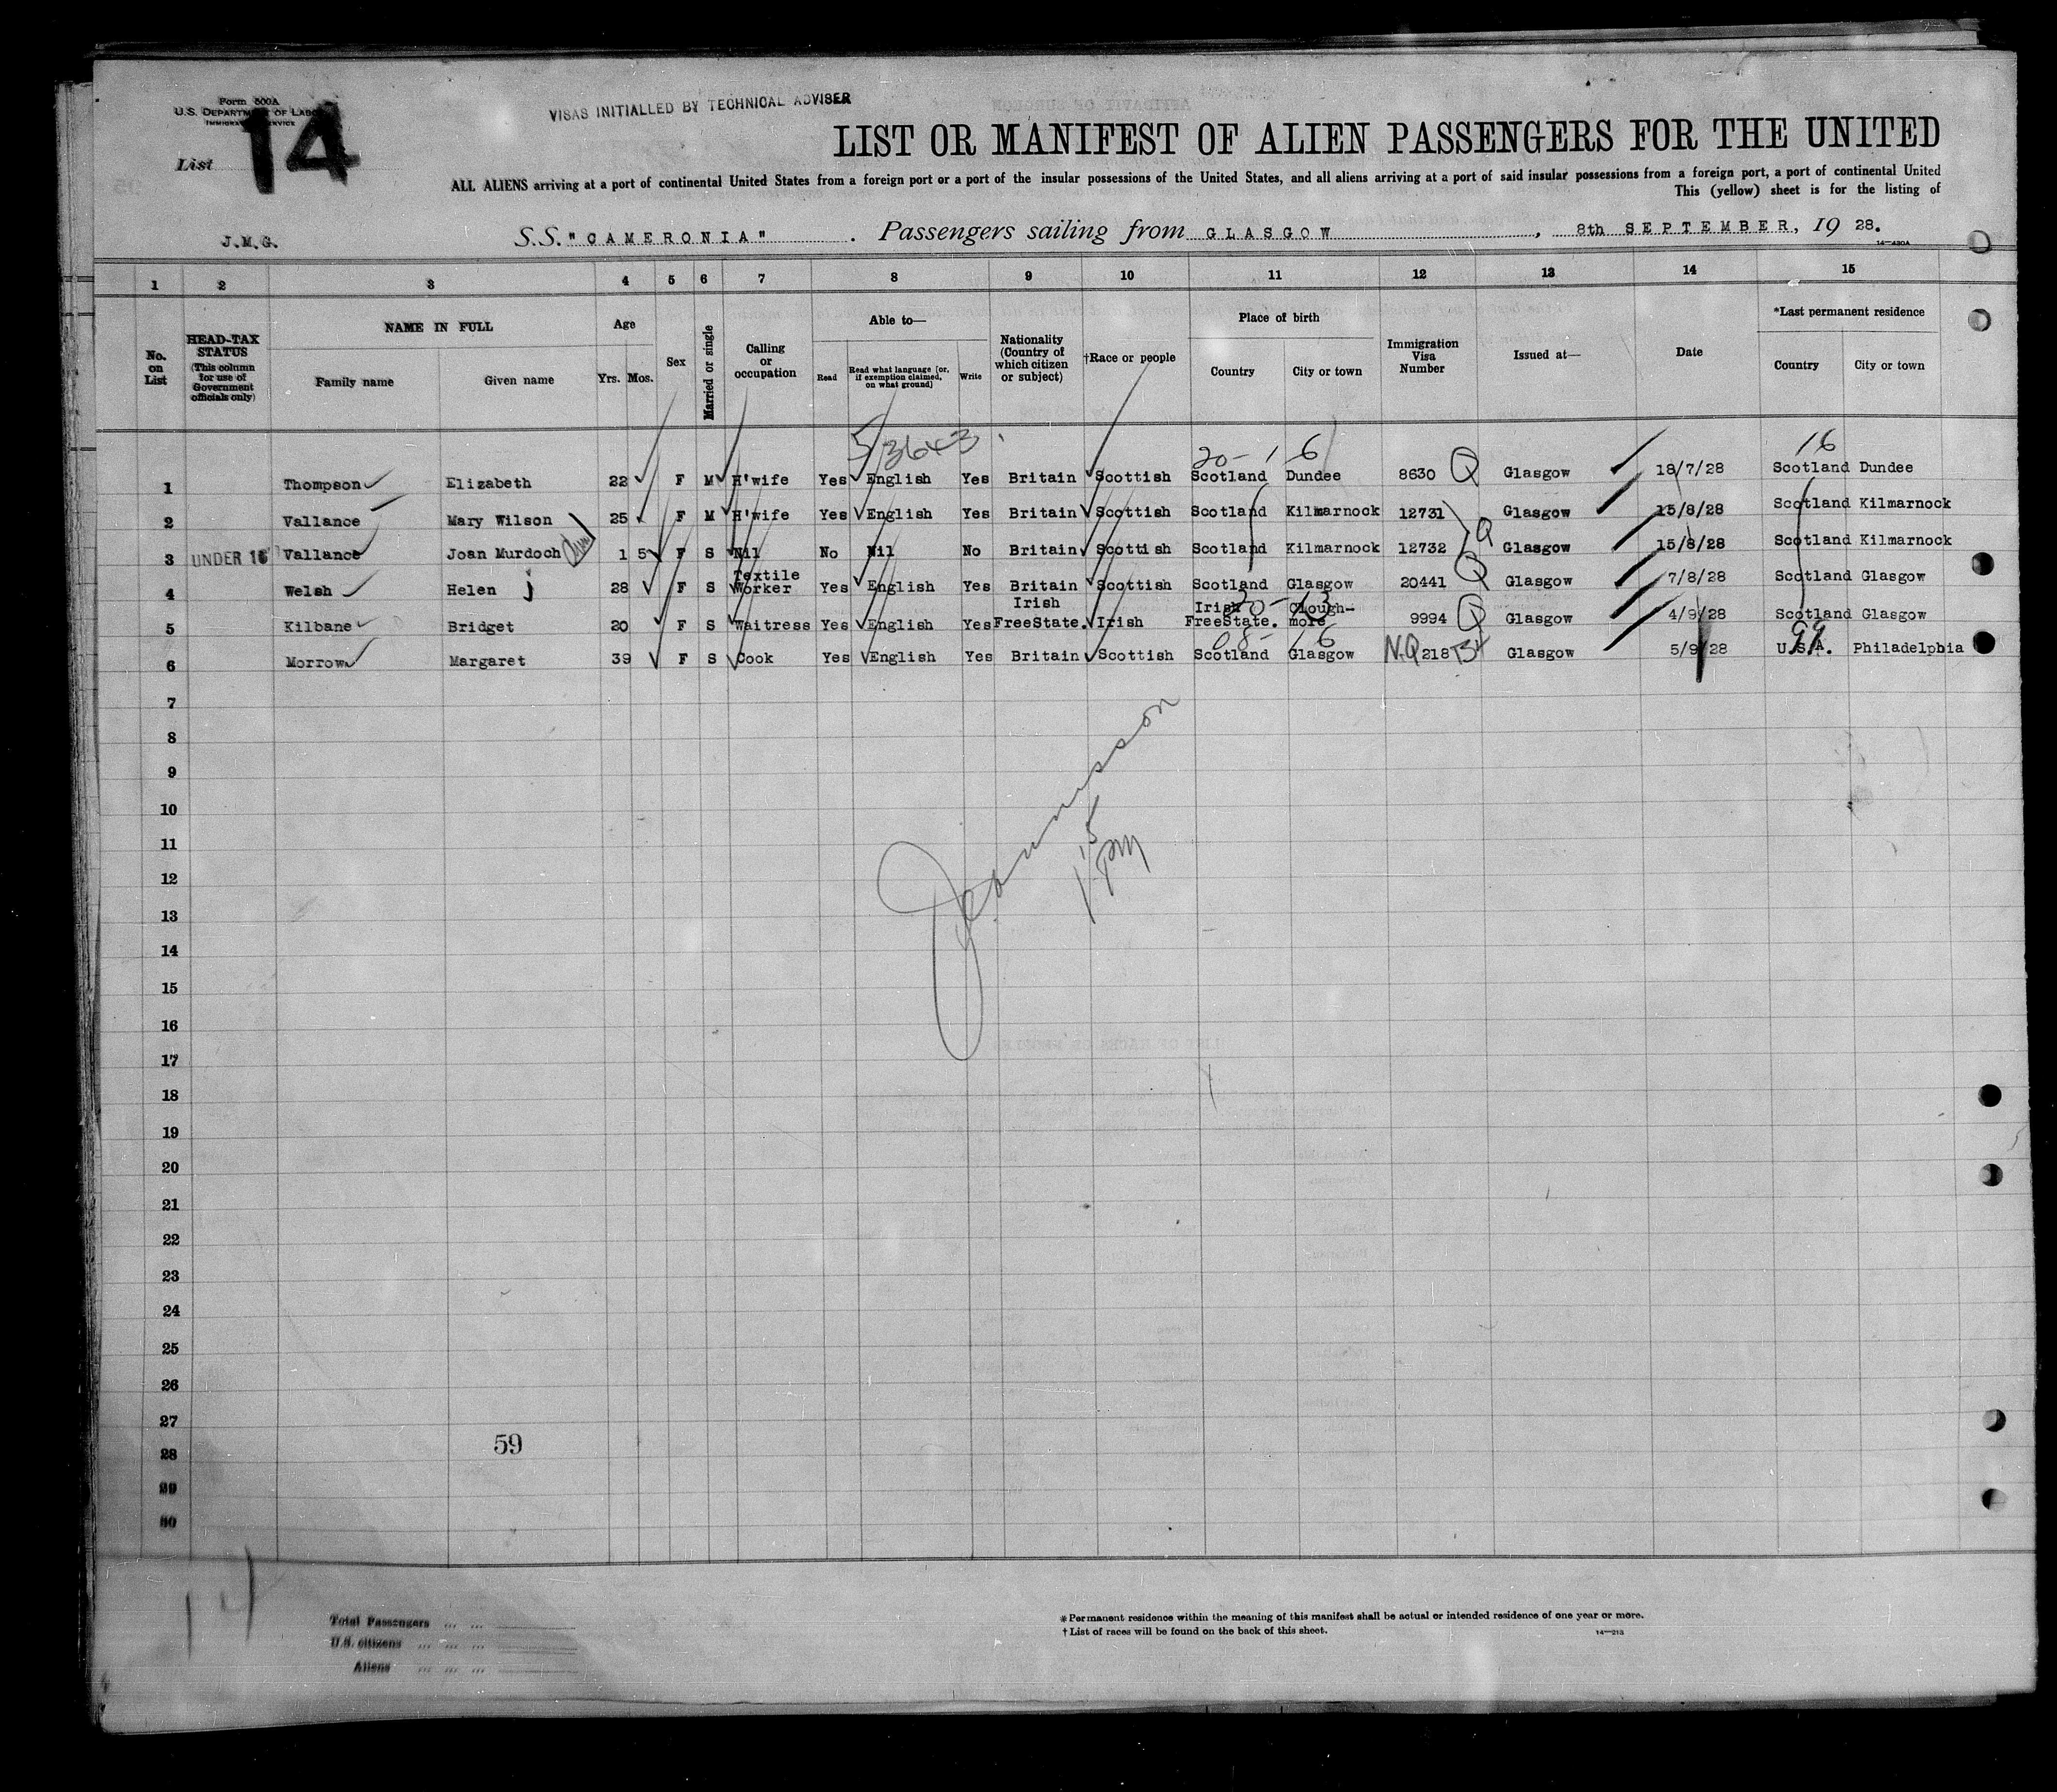 Form 500A
U.S. DEPARTMENT OF LABOR
IMMIGRATION SERVICE
List 14
VISAS INITIALLED BY TECHNICAL ADVISER
LIST OR MANIFEST OF ALIEN PASSENGERS FOR THE UNITED
ALL ALIENS arriving at a port of continental United States from a foreign port or a port of the insular possessions of the United States, and all aliens arriving at a port of said insular possessions from a foreign port, a port of continental United
This (yellow) sheet is for the listing of
J.M.G. S.S. "CAMERONIA" . Passengers sailing from GLASGOW , 8th SEPTEMBER, 19 28.
14-430A
1 2 3 4 5 6 7 8 9 10 11 12 13 14 15
No. on List
HEAD-TAX STATUS (This column for use of Government officials only)
NAME IN FULL
Family name Given name
Age
Yrs. Mos.
Sex
Married or single
Calling or occupation
Able to—
Read Read what language [or, if exemption claimed, on what ground] Write
Nationality (Country of which citizen or subject)
†Race or people
Place of birth
Country City or town
Immigration Visa Number
Issued at—
Date
*Last permanent residence
Country City or town
5/3643 20- 16 16
1 Thompson Elizabeth 22 F M H'wife Yes English Yes Britain Scottish Scotland Dundee 8630 Q Glasgow 18/7/28 Scotland Dundee
2 Vallance Mary Wilson 25 F M H'wife Yes English Yes Britain Scottish Scotland Kilmarnock 12731 Glasgow 15/8/28 Scotland Kilmarnock
3 UNDER 16 Vallance Joan Murdoch 1 5 F S Nil No Nil No Britain Scottish Scotland Kilmarnock 12732 Q Glasgow 15/8/28 Scotland Kilmarnock
4 Welsh Helen 28 F S Textile Worker Yes English Yes Britain Scottish Scotland Glasgow 20441 Q Glasgow 7/8/28 Scotland Glasgow
5 Kilbane Bridget 20 F S Waitress Yes English Yes Irish FreeState. Irish Irish FreeState. Clough-more 9994 Q Glasgow 4/9/28 Scotland Glasgow
08- 16 99
6 Morrow Margaret 39 F S Cook Yes English Yes Britain Scottish Scotland Glasgow N.Q 218 Glasgow 5/9/28 U.S.A. Philadelphia
7
8
9
10
11
12
13
14
15
16
17
18
19
20
21
22
23
24
25
26
27
59
28
29
30
Total Passengers ... ...
U.S. citizens ... ... ...
Aliens ... ... ...
*Permanent residence within the meaning of this manifest shall be actual or intended residence of one year or more.
†List of races will be found on the back of this sheet.
14-213